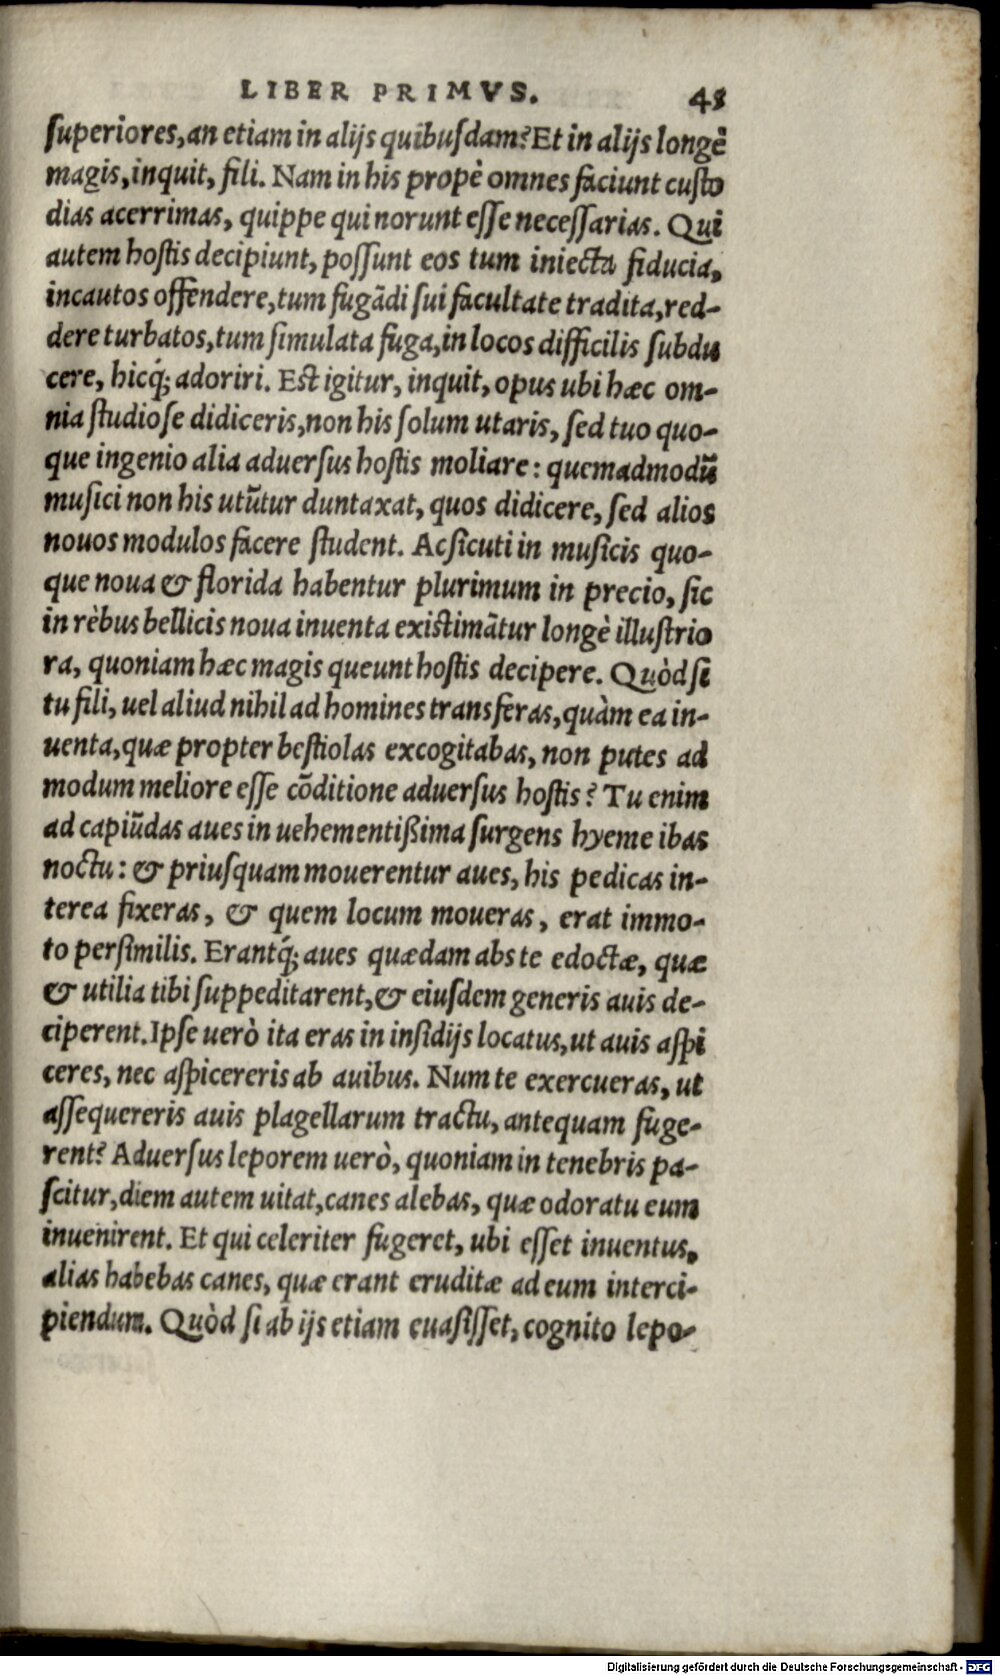 LIBER PRIMVS. 48
superiores, an etiam in alijs quibusdam? Et in alijs longè
magis, inquit, fili. Nam in his propè omnes faciunt custo
dias acerrimas, quippe qui norunt esse necessarias. Qui
autem hostis decipiunt, possunt eos tum iniecta fiducia,
incautos offendere, tum fugādi sui facultate tradita, red-
dere turbatos, tum simulata fuga, in locos difficilis subdu
cere, hicq́; adoriri. Est igitur, inquit, opus ubi hæc om-
nia studiose didiceris, non his solum utaris, sed tuo quo-
que ingenio alia aduersus hostis moliare: quemadmodū
musici non his utūtur duntaxat, quos didicere, sed alios
nouos modulos facere student. Ac sicuti in musicis quo-
que noua & florida habentur plurimum in precio, sic
in rèbus bellicis noua inuenta existimātur longè illustrio
ra, quoniam hæc magis queunt hostis decipere. Quòd si
tu fili, uel aliud nihil ad homines transferas, quàm ea in-
uenta, quæ propter bestiolas excogitabas, non putes ad
modum meliore esse cōditione aduersus hostis? Tu enim
ad capiūdas aues in uehementißima surgens hyeme ibas
noctu: & priusquam mouerentur aues, his pedicas in-
terea fixeras, & quem locum moueras, erat immo-
to persimilis. Erantq́; aues quædam abs te edoctæ, quæ
& utilia tibi suppeditarent, & eiusdem generis auis de-
ciperent. Ipse uerò ita eras in insidijs locatus, ut auis aspi
ceres, nec aspicereris ab auibus. Num te exercueras, ut
assequereris auis plagellarum tractu, antequam fuge-
rent? Aduersus leporem uerò, quoniam in tenebris pa-
scitur, diem autem uitat, canes alebas, quæ odoratu eum
inuenirent. Et qui celeriter fugeret, ubi esset inuentus,
alias habebas canes, quæ erant eruditæ ad eum interci-
piendum. Quòd si ab ijs etiam euasisset, cognito lepo-
Digitalisierung gefördert durch die Deutsche Forschungsgemeinschaft - DFG